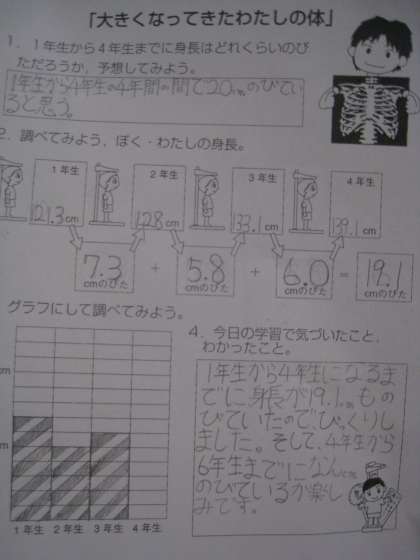 「大きくなってきたわたしの体」
1．1年生から4年生までに身長はどれくらいのび
ただろうか，予想してみよう。
1年生から4年生の4年間の間で20cmのびてい
ると思う。
2．調べてみよう，ぼく・わたしの身長。
1年生 2年生 3年生 4年生
121.3cm 128cm 133.1cm 139.1cm
7.3 + 5.8 + 6.0 = 19.1
cmのびた cmのびた cmのびた cmのびた
グラフにして調べてみよう。
cm
cm
1年生 2年生 3年生 4年生
4．今日の学習で気づいたこと，
わかったこと。
1年生から4年生になるま
でに身長が19.1cmもの
びていたので、びっくりし
ました。そして、4年生から
6年生までになんcm
のびているか楽し
みです。